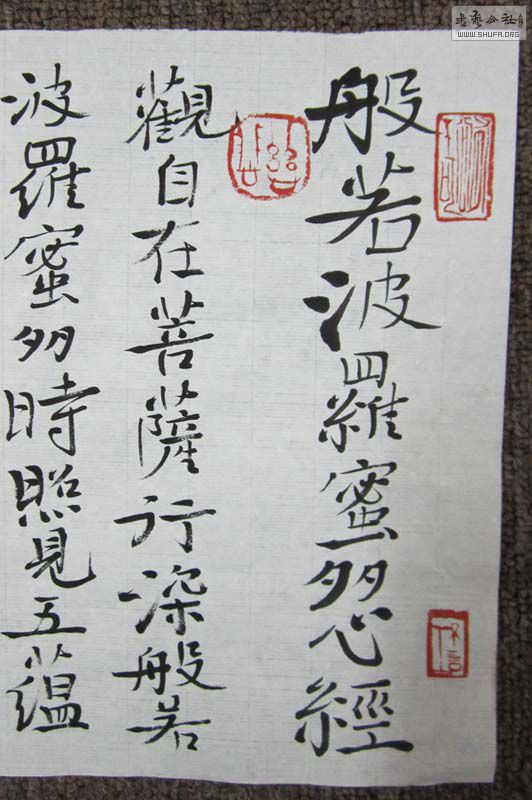 般若波羅蜜多心經
觀自在菩薩行深般若
波羅蜜多時照見五蘊
書藝公社
WWW.SHUFA.ORG